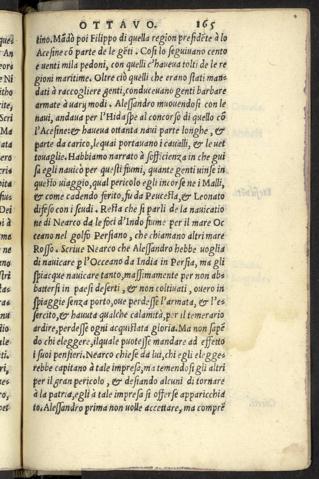 OTTAVO. 165
tino. Mãdò poi Filippo di quella region presidẽte à lo
Acesine cõ parte de le gẽti. Cosi lo seguiuano cento
e uenti mila pedoni, con quelli c'haueua tolti de le re
gioni maritime. Oltre ciò quelli che erano stati man-
dati à raccogliere genti, conduceuano genti barbare
armate à uary modi. Alessandro muouendosi con le
naui, andaua per l'Hidaspe al concorso di quello cõ
l'Acesine: & haueua ottanta naui parte longhe, &
parte da carico, le quai portauano i caualli, & le uet
touaglie. Habbiamo narrato à sofficienza in che gui
sa egli nauicò per questi fiumi, quante genti uinse in
questo uiaggio, qual pericolo egli incorse ne i Malli,
& come cadendo ferito, fu da Peucesta, & Leonato
difeso con i scudi. Resta che si parli de la nauicatio
ne di Nearco da le foci d'Indo fiume per il mare Oc
ceano nel golfo Persiano, che chiamano altri mare
Rosso. Scriue Nearco che Alessandro hebbe uoglia
di nauicare p l'Occeano da India in Persia, ma gli
spiacque nauicare tanto, massimamente per non abs
battersi in paesi deserti, & non coltiuati, ouero in
spiaggie senza porto, oue perdesse l'armata, & l'es
sercito, & hauuta qualche calamità, per il temerario
ardire, perdesse ogni acquistata gloria. Ma non sapẽ
do chi eleggere, il quale potesse mandare ad effetto
i suoi pensieri. Nearco chiese da lui, chi egli elegge-
rebbe capitano à tale impresa, ma temendosi gli altri
per il gran pericolo, & desiando alcuni di tornare
à la patria, egli à tale impresa si offerse apparicchia
to. Alessandro prima non uolle accettare, ma comprẽ